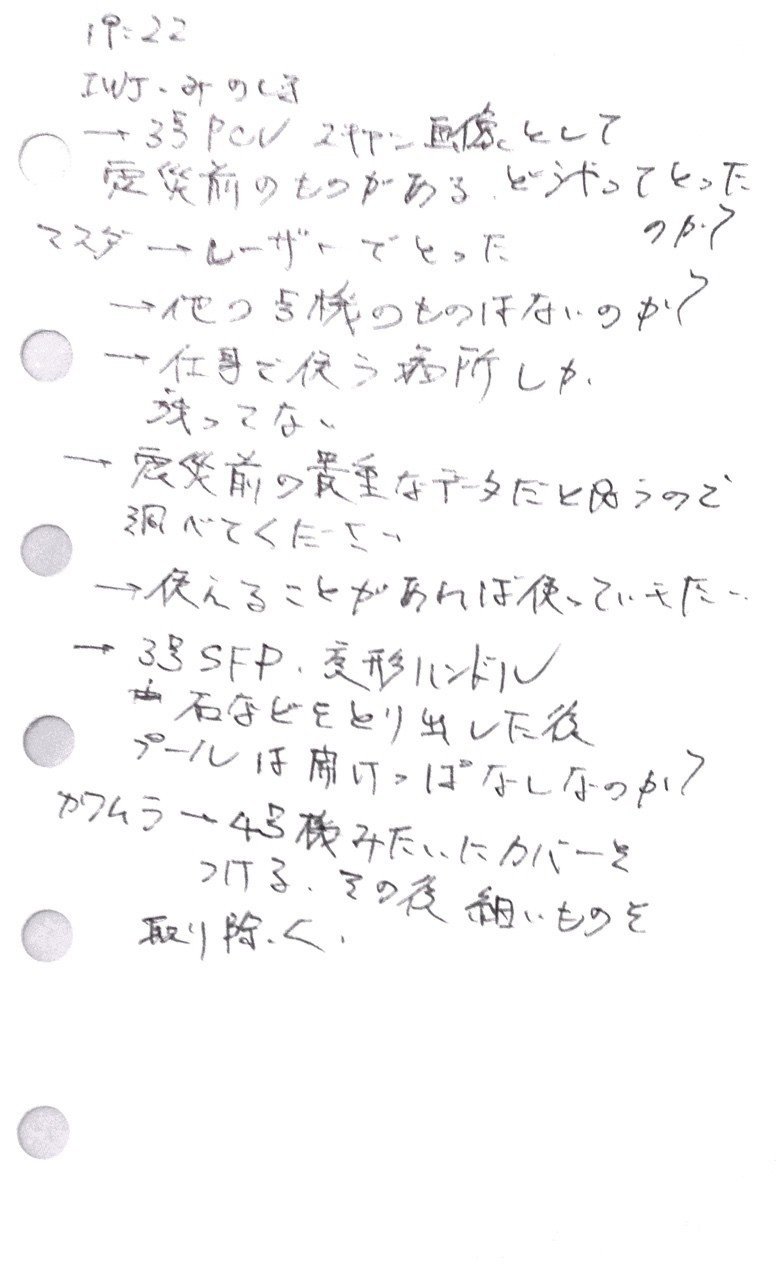 19:22
IWJ・みのしま
→ 3号PCV スキャン画像として
震災前のものがある。どうやってとった
のか?
マスダ → レーザーでとった
→ 他の号機のものはないのか?
→ 仕事で使う場所しか
残ってない
→ 震災前の貴重なデータだと思うので
調べてください
→ 使えることがあれば使っていきたい
→ 3号SFP. 変形ハンドル
石などをとり出した後
プールは開けっぱなしなのか?
カワムラ → 4号機みたいにカバーを
つける. その後 細いものを
取り除く.